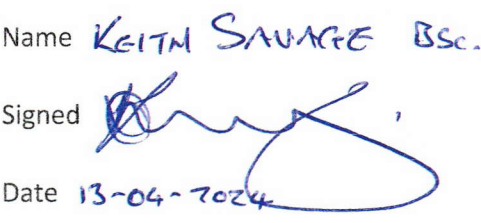 Name KEITH SAVAGE BSc.
Signed
Date 13-04-2024